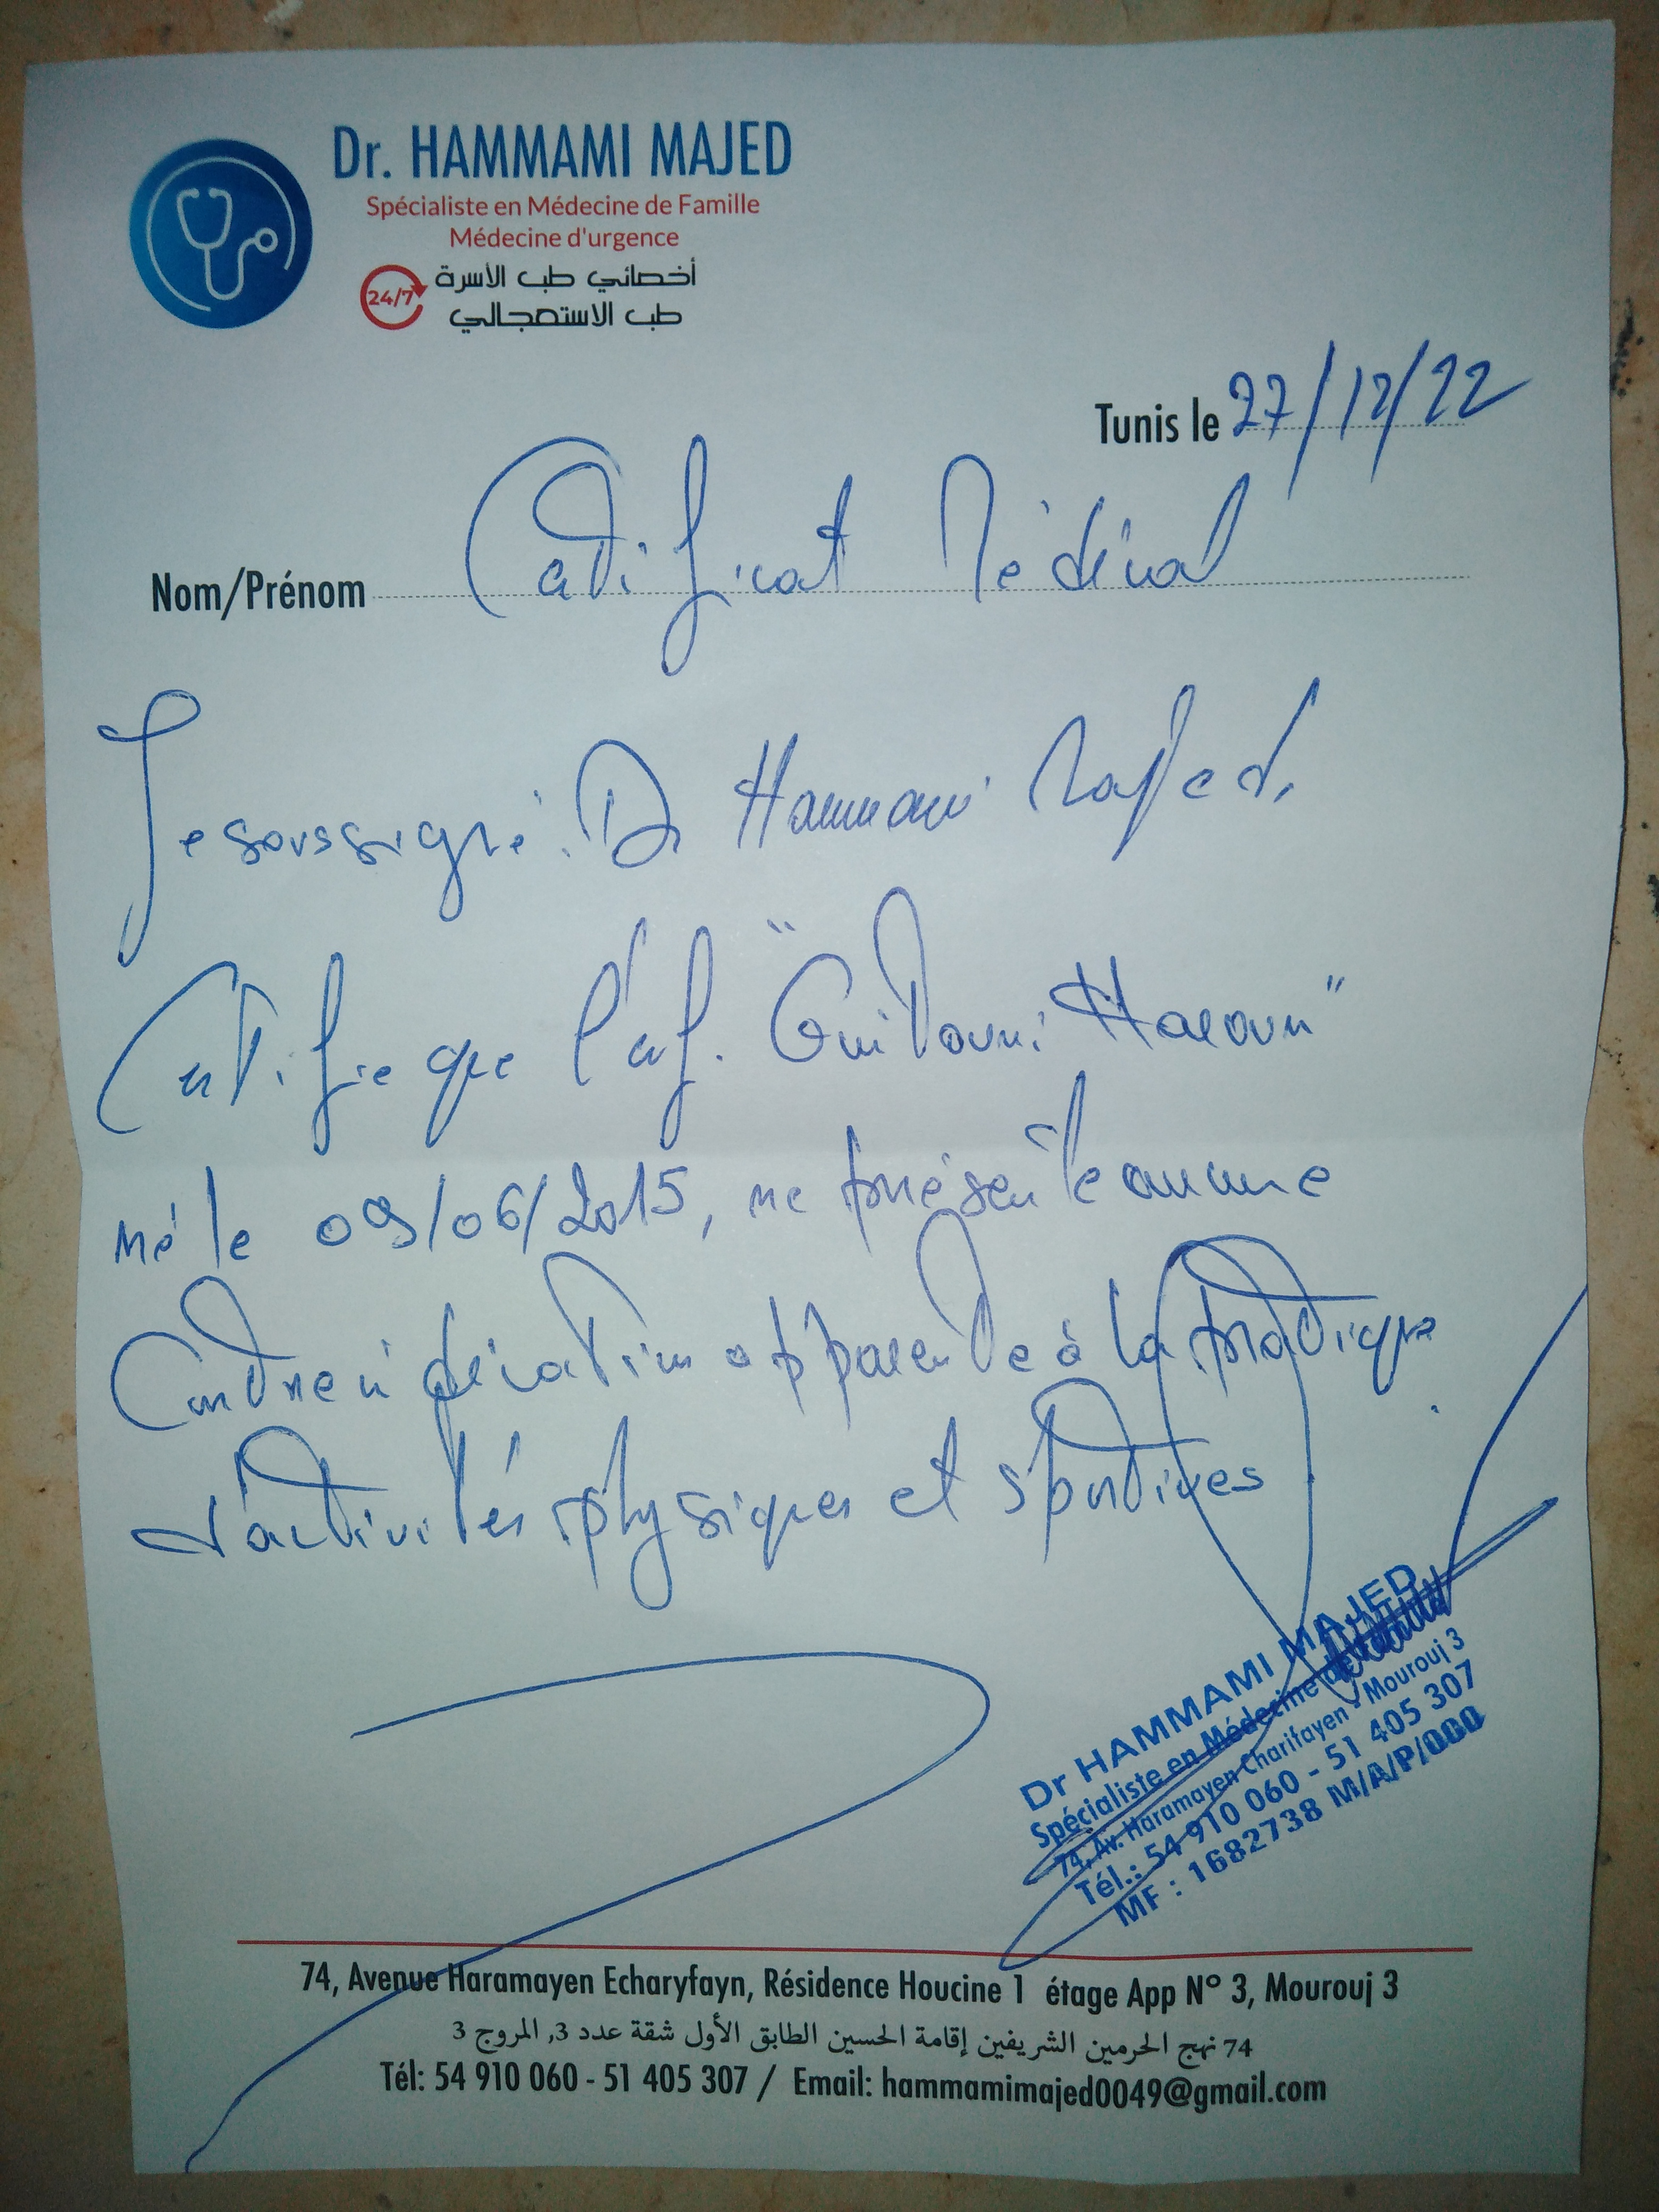 Dr. HAMMAMI MAJED
Spécialiste en Médecine de Famille
Médecine d'urgence
24/7
أخصائي طب الأسرة
طب الاستعجالي
Tunis le 27/12/22
Nom/Prénom Certificat Médical
Je soussigné : Dr Hammami Majed,
Certifie que l'enf. "Guitouni Haroun"
né le 09/06/2015, ne présente aucune
Contre indication apparente à la pratique
d'activités physiques et sportives
Dr HAMMAMI MAJED
Spécialiste en Médecine de Famille
74, Av. Haramayen Charifayen - Mourouj 3
Tél.: 54 910 060 - 51 405 307
MF : 1682738 M/A/P/000
74, Avenue Haramayen Echaryfayn, Résidence Houcine 1 étage App N° 3, Mourouj 3
74 نهج الحرمين الشريفين إقامة الحسين الطابق الأول شقة عدد 3, المروج 3
Tél: 54 910 060 - 51 405 307 / Email: hammamimajed0049@gmail.com